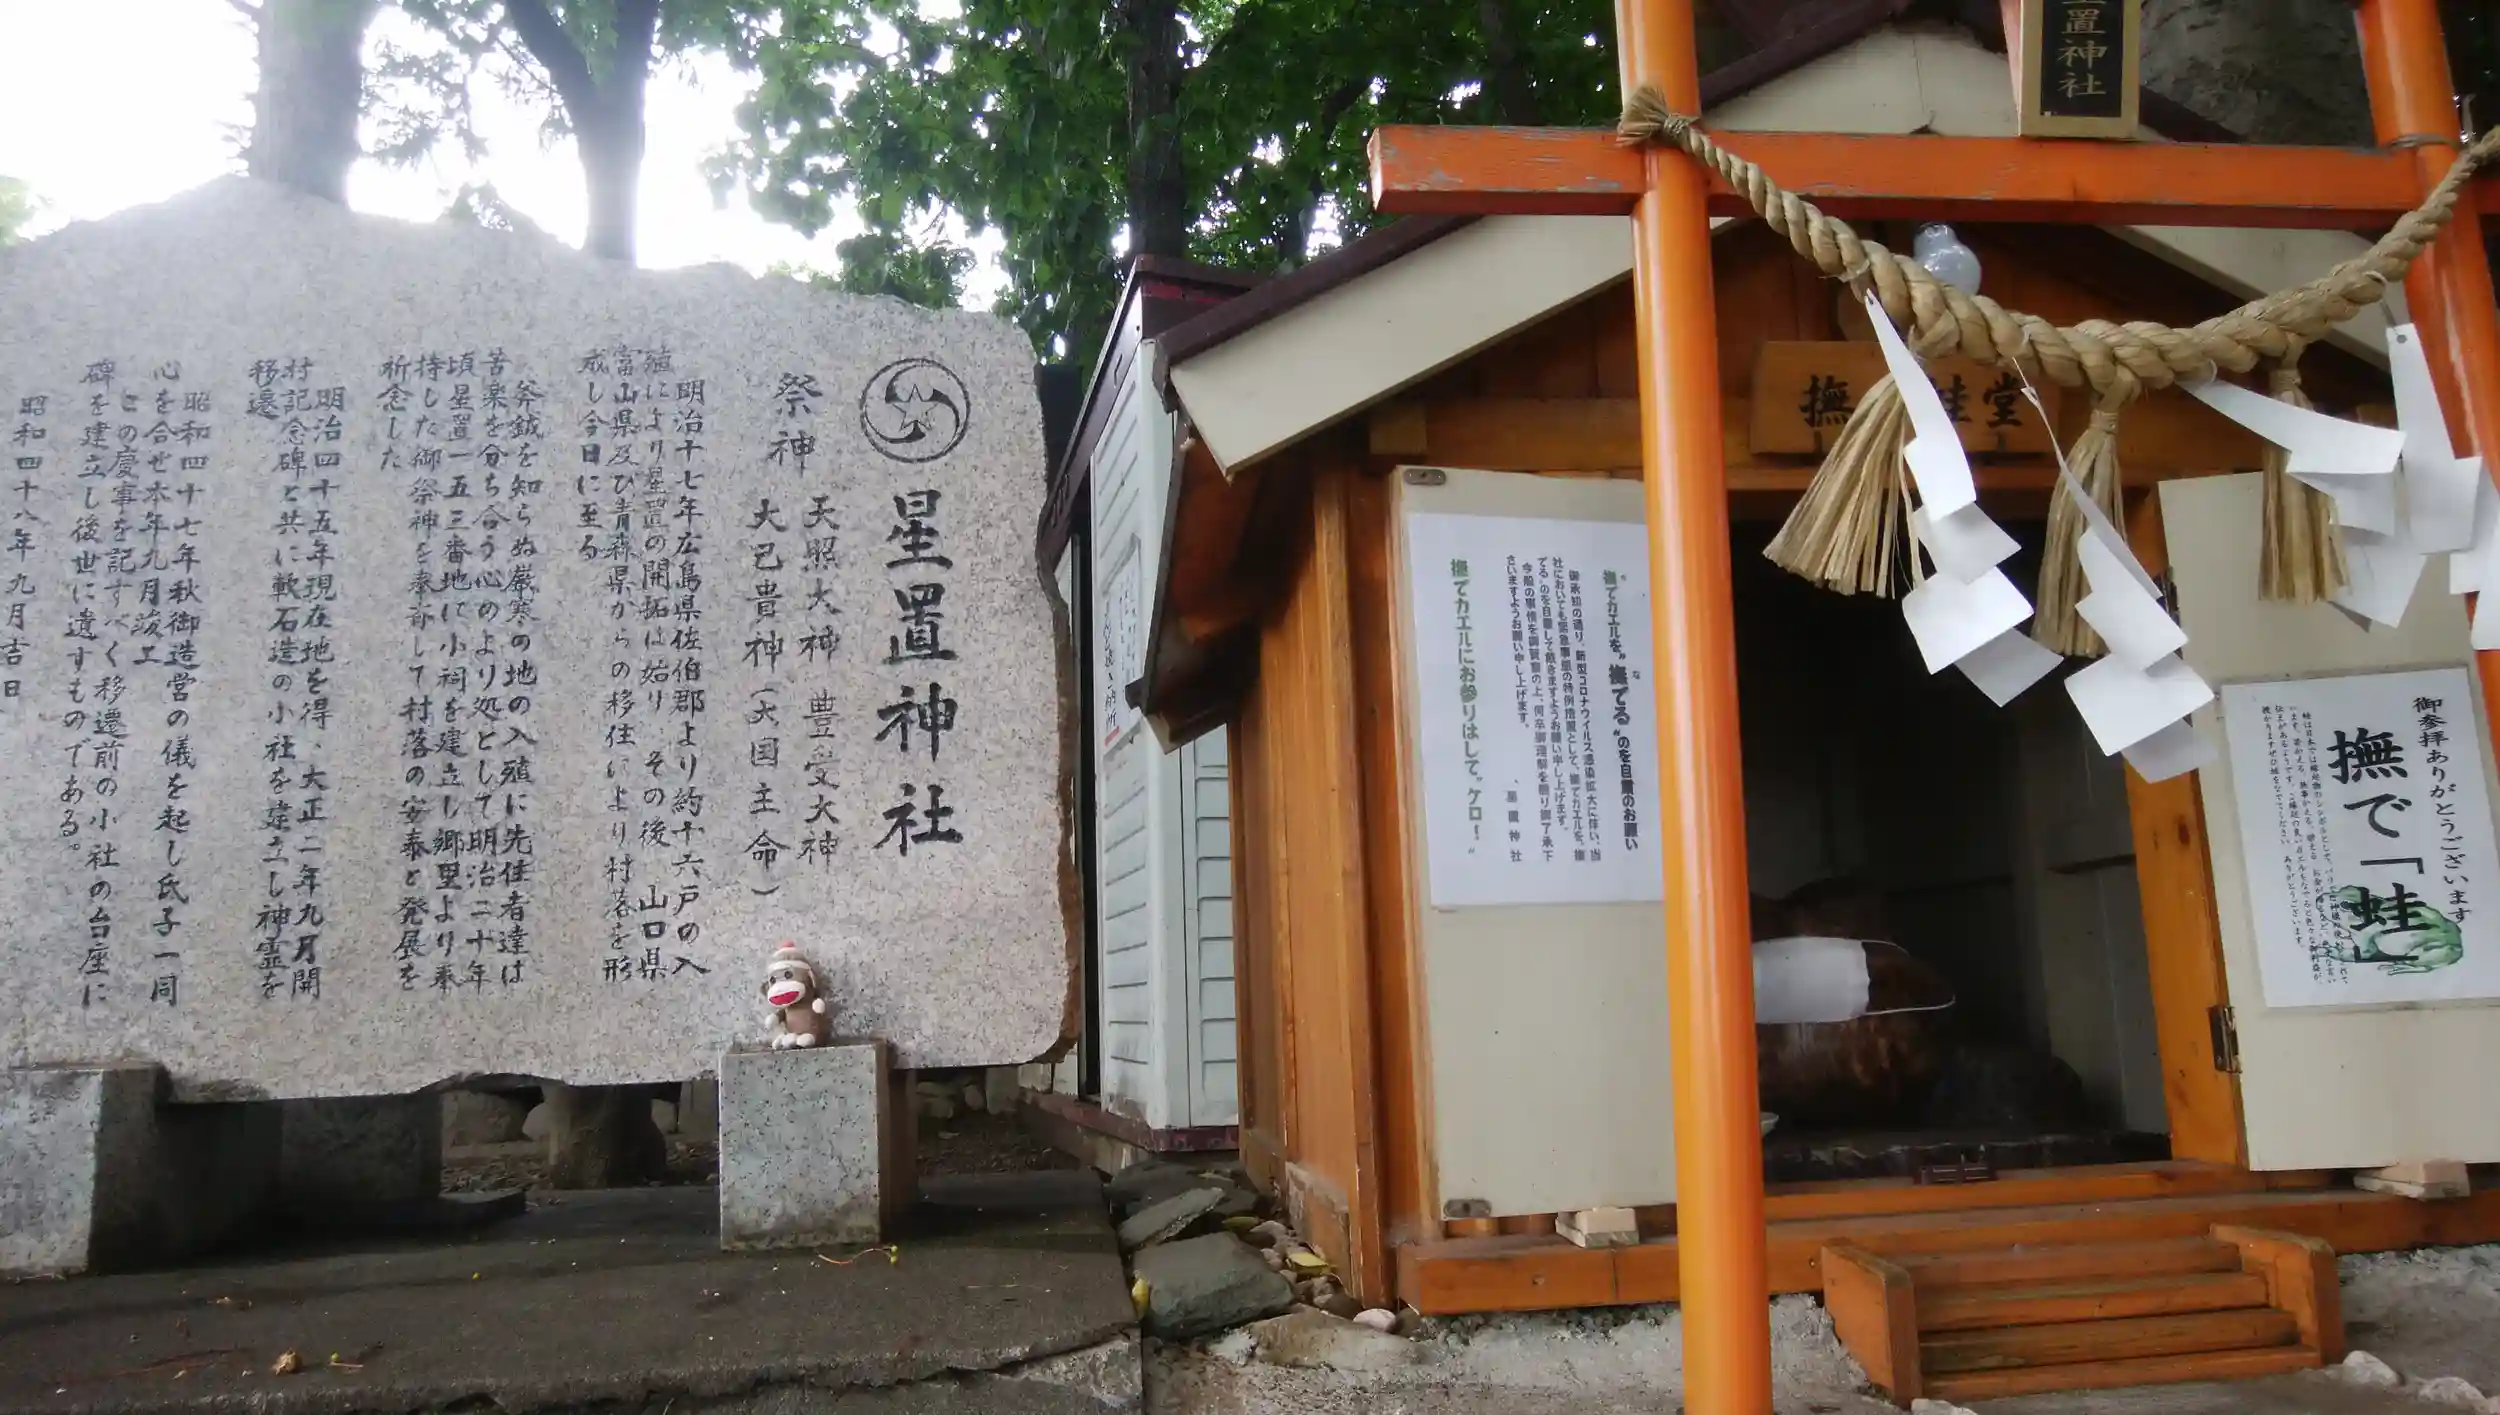 星置神社
祭神 天照大神 豊受大神
大己貴神(大国主命)
明治十七年広島県佐伯郡より約十六戸の入
殖により星置の開拓は始り その後 山口県
富山県及び青森県からの移住により村落を形
成し今日に至る
斧鉞を知らぬ厳寒の地の入殖に先住者達は
苦楽を分ち合う心のより処として明治二十年
頃星置一五三番地に小祠を建立し郷里より奉
持した御祭神を奉祢して村落の安泰と発展を
祈念した
明治四十五年現在地を得、大正二年九月開
村記念碑と共に軟石造の小社を建立し神霊を
移遷
昭和四十七年秋御造営の儀を起し氏子一同
心を合せ本年九月竣工
この慶事を記すべく移遷前の小社の台座に
碑を建立し後世に遺すものである。
昭和四十八年九月吉日
置神社
撫 蛙堂
撫でカエルを〝撫でる〟のを自粛のお願い
な
御承知の通り、新型コロナウイルス感染拡大に伴い、当
社においても緊急事態の特例措置として、撫でカエルを、撫
でる〟のを自粛して戴きますようお願い申し上げます。
今般の事情を御賢察の上、何卒御理解を賜り御了承下
さいますようお願い申し上げます。
星置神社
撫でカエルにお参りはして〝ケロ!〟
御参拝ありがとうございます
撫で「蛙」